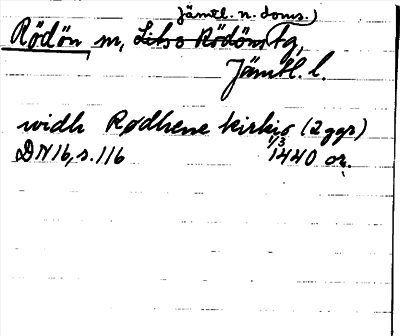 Jämtl. n. doms.)
Rödön sn, Liths Rödöns tg,
Jämtl. l.
widh Rødhene kirkio (2 ggr)
DN 16, s. 116 1/3 1440 or.